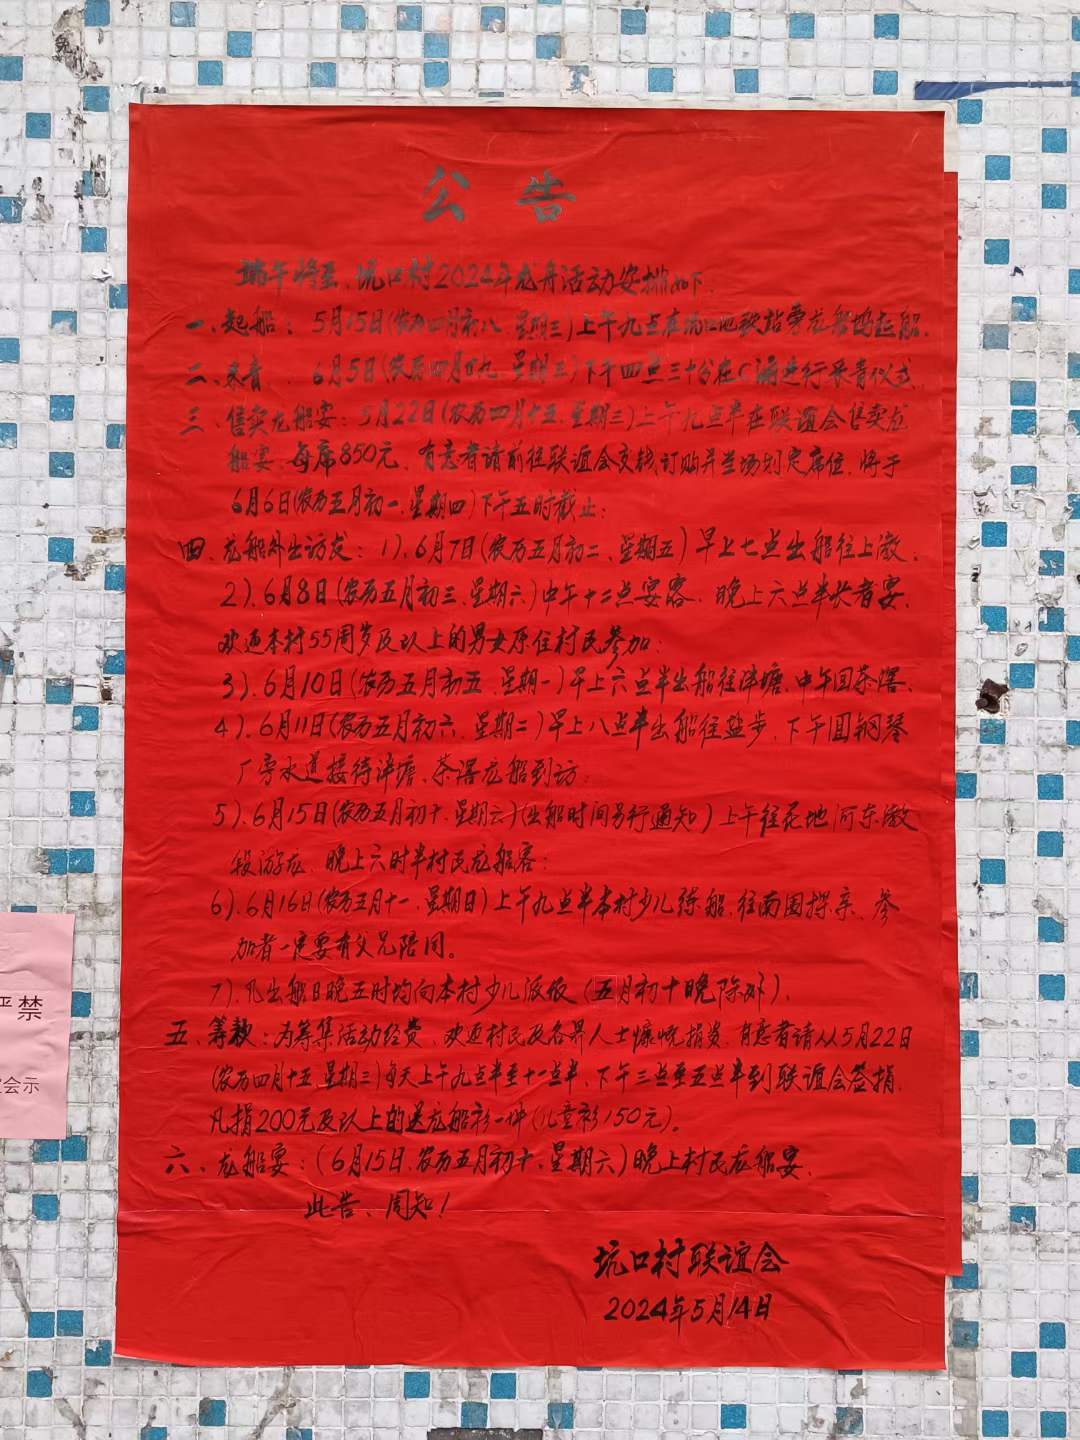 公告
端午将至，坑口村2024年龙舟活动安排如下：
一、起船：5月15日(农历四月初八、星期三)上午九点在坑口地铁站旁龙船坞起船。
二、采青：6月5日(农历四月廿九、星期三)下午四点三十分在 进行采青仪式。
三、售卖龙船宴：5月22日(农历四月十五、星期三)上午九点半在联谊会售卖龙
船宴，每席850元，有意者请前往联谊会交钱订购并当场划定席位，将于
6月6日(农历五月初一、星期四)下午五时截止；
四、龙船外出访友：1)、6月7日(农历五月初二、星期五)早上七点出船往上漖。
2)、6月8日(农历五月初三、星期六)中午十二点宴客，晚上六点半长者宴，
欢迎本村55周岁及以上的男女原住村民参加；
3)、6月10日(农历五月初五、星期一)早上六点半出船往泮塘，中午回茶滘。
4)、6月11日(农历五月初六、星期二)早上八点半出船往盐步，下午回钢琴
厂旁水道接待泮塘、茶滘龙船到访；
5)、6月15日(农历五月初十、星期六)(出船时间另行通知)上午往花地河东漖
段游龙，晚上六时半村民龙船宴；
6)、6月16日(农历五月十一、星期日)上午九点半本村少儿练船，往南围探亲，参
加者一定要有父兄陪同。
7)、凡出船日晚五时均向本村少儿派饭(五月初十晚除外)。
五、筹款：为筹集活动经费，欢迎村民及各界人士慷慨捐资，有意者请从5月22日
(农历四月十五、星期三)每天上午九点半至十一点半，下午三点至五点半到联谊会签捐，
凡捐200元及以上的送龙船衫一件(儿童衫150元)。
六、龙船宴：(6月15日、农历五月初十、星期六)晚上村民龙船宴。
此告、周知！
坑口村联谊会
2024年5月14日
严禁
会示